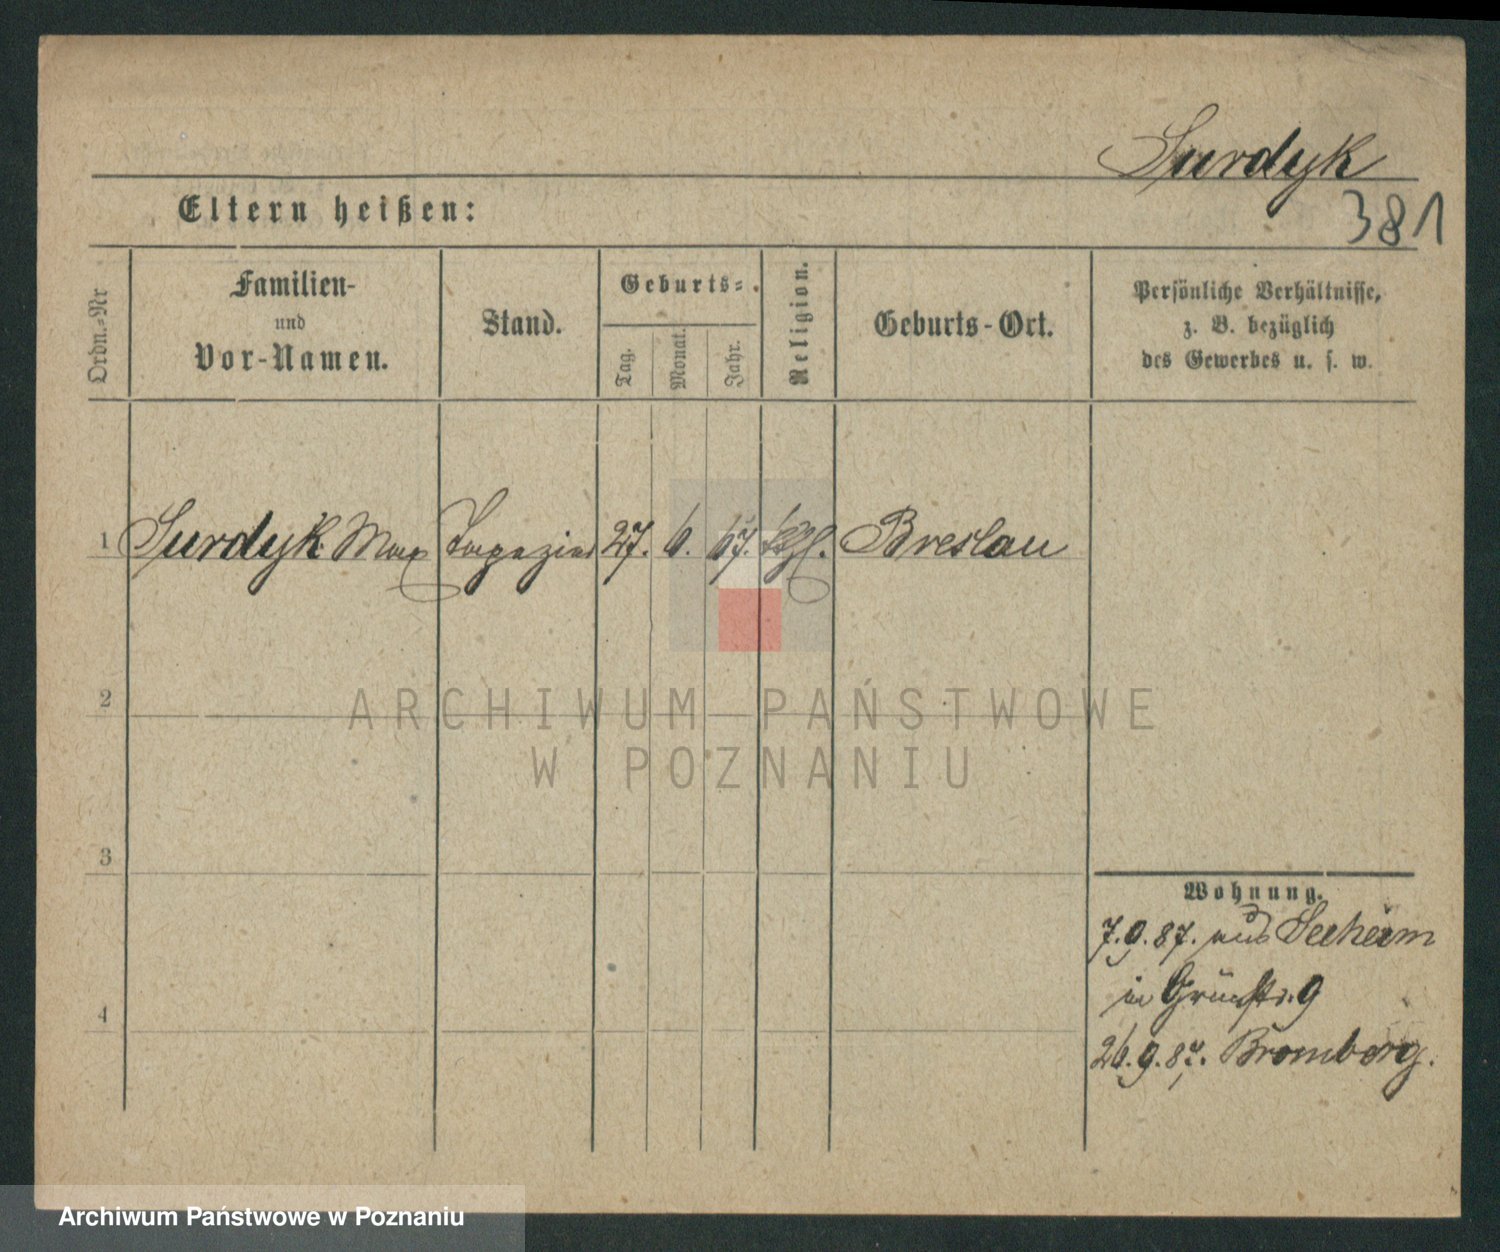 Surdyk
381
Eltern heißen:
Ordn.-Nr
Familien-
und
Vor-Namen.
Stand.
Geburts-
Tag.
Monat.
Jahr.
Religion.
Geburts-Ort.
Persönliche Verhältnisse,
z. B. bezüglich
des Gewerbes u. s. w.
1 Surdyk Max Tapezier 27. 6. 67. Breslau
2
3
4
Wohnung.
7.9.87. aus Seeheim
in Grünstr. 9
26.9.87. Bromberg.
ARCHIWUM PAŃSTWOWE
W POZNANIU
Archiwum Państwowe w Poznaniu